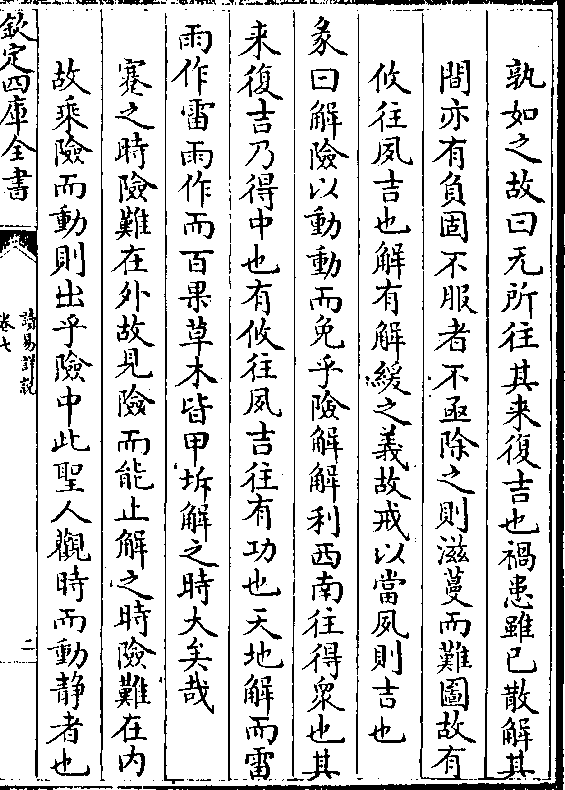 孰如之故曰无所往其来復吉也禍患雖已散解其
間亦有負固不服者不亟除之則滋蔓而難圖故有
攸往夙吉也解有解緩之義故戒以當夙則吉也
彖曰解險以動動而免乎險解解利西南往得衆也其
来復吉乃得中也有攸往夙吉往有功也天地解而雷
雨作雷雨作而百果草木皆甲坼解之時大矣哉
蹇之時險難在外故見險而能止解之時險難在内
故乘險而動則出乎險中此聖人觀時而動静者也
欽定四庫全書
讀易詳説
卷七
二